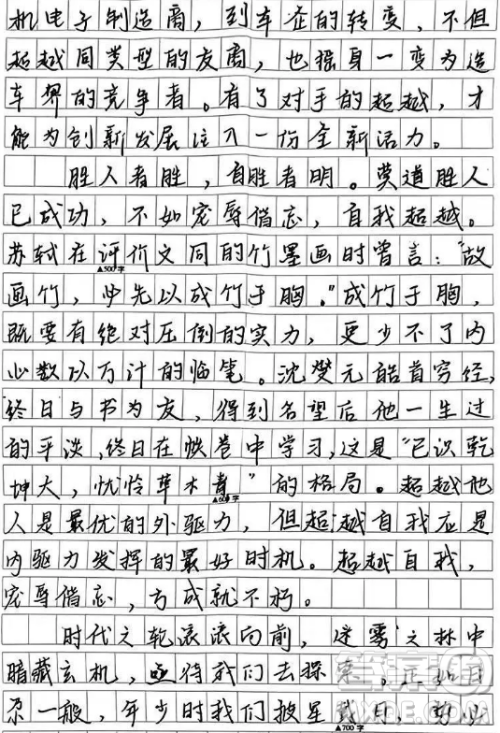 机电子制造商，到车企的转变，不但
超越同类型的友商，也摇身一变为造
车界的竞争者。有了对手的超越，才
能为创新发展注入一份全新活力。
胜人者胜，自胜者明。莫道胜人
已成功，不如宠辱偕忘，自我超越。
苏轼在评价文同的竹墨画时曾言："故
▲500字
画竹，必先以成竹于胸。"成竹于胸，
既要有绝对压倒的实力，更少不了内
心数以万计的临笔。沈燮元皓首穷经，
终日与书为友，得到名望后他一生过
的平淡，终日在帙卷中学习，这是"已识乾
坤大，忧怜草木青"的格局。超越他
▲600字
人是最优的外驱力，但超越自我应是
内驱力发挥的最好时机。超越自我，
宠辱偕忘，方成就不朽。
时代之轮滚滚向前，迷雾之林中
暗藏玄机，亟待我们去探索。正如
尔一般，年少时我们披星戴月，
▲700字